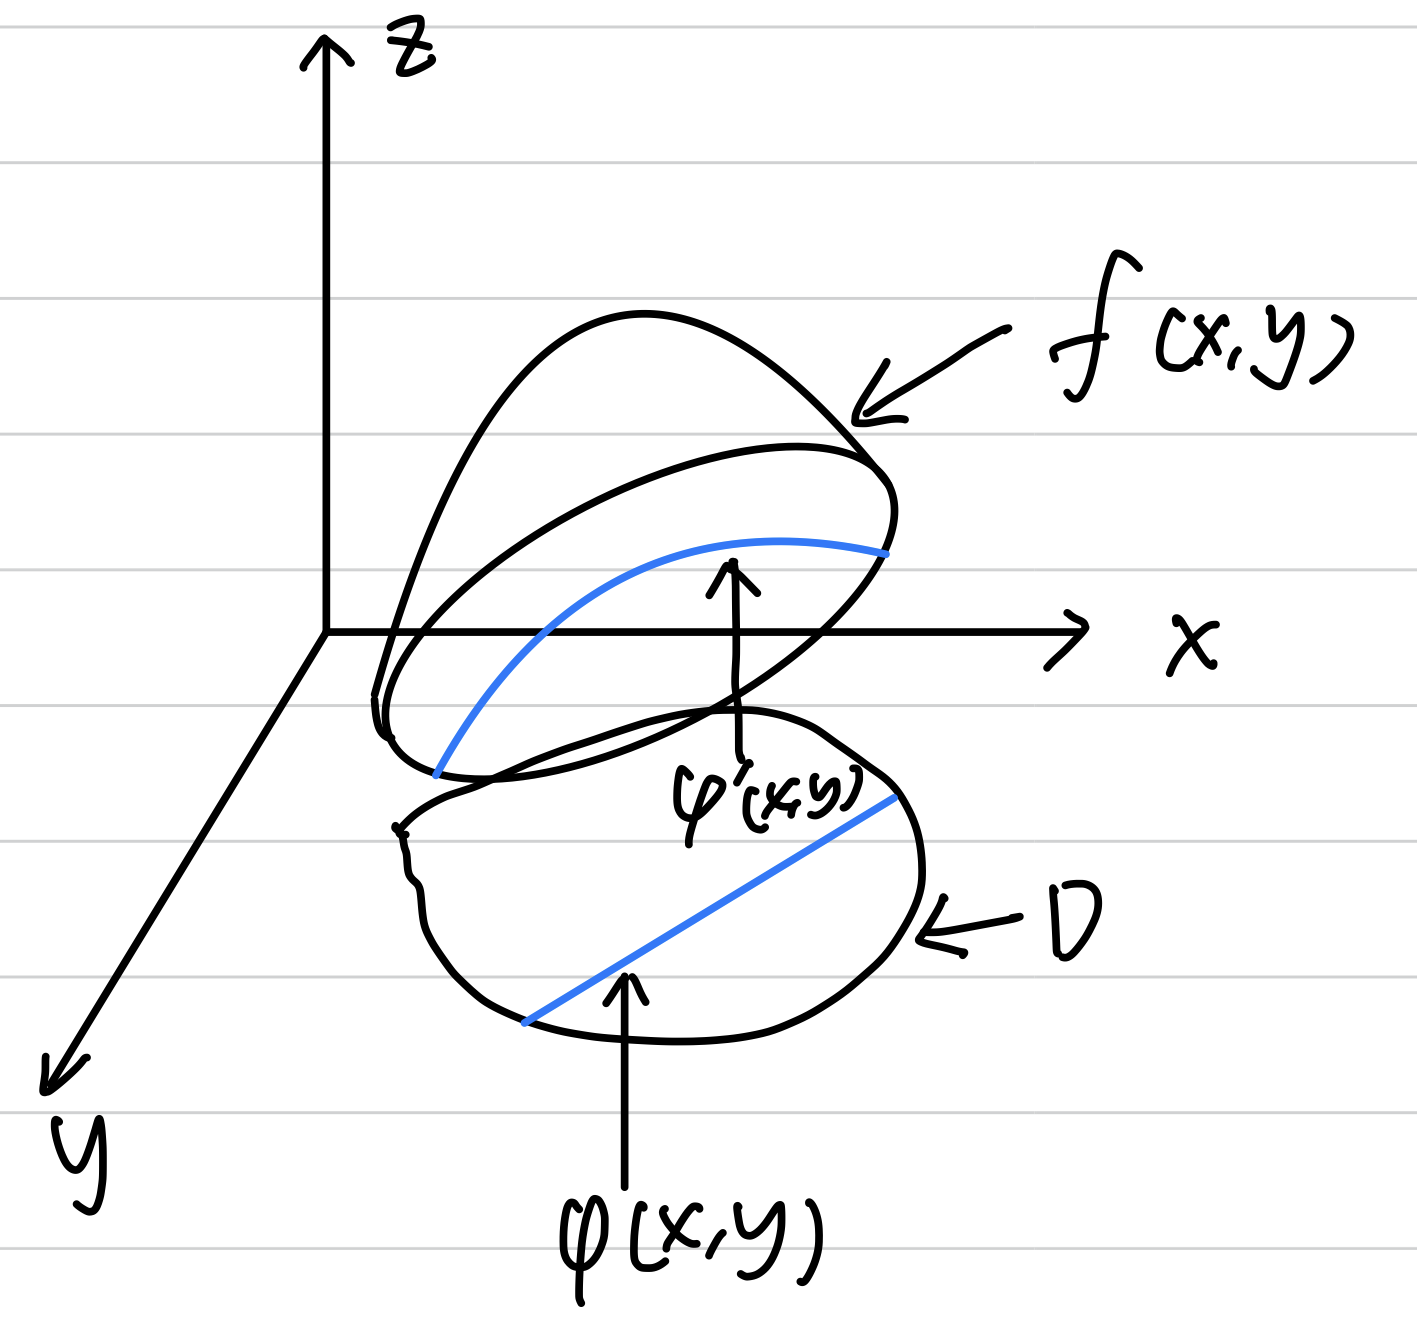 z
f(x,y)
x
φ'(x,y)
D
y
φ(x,y)